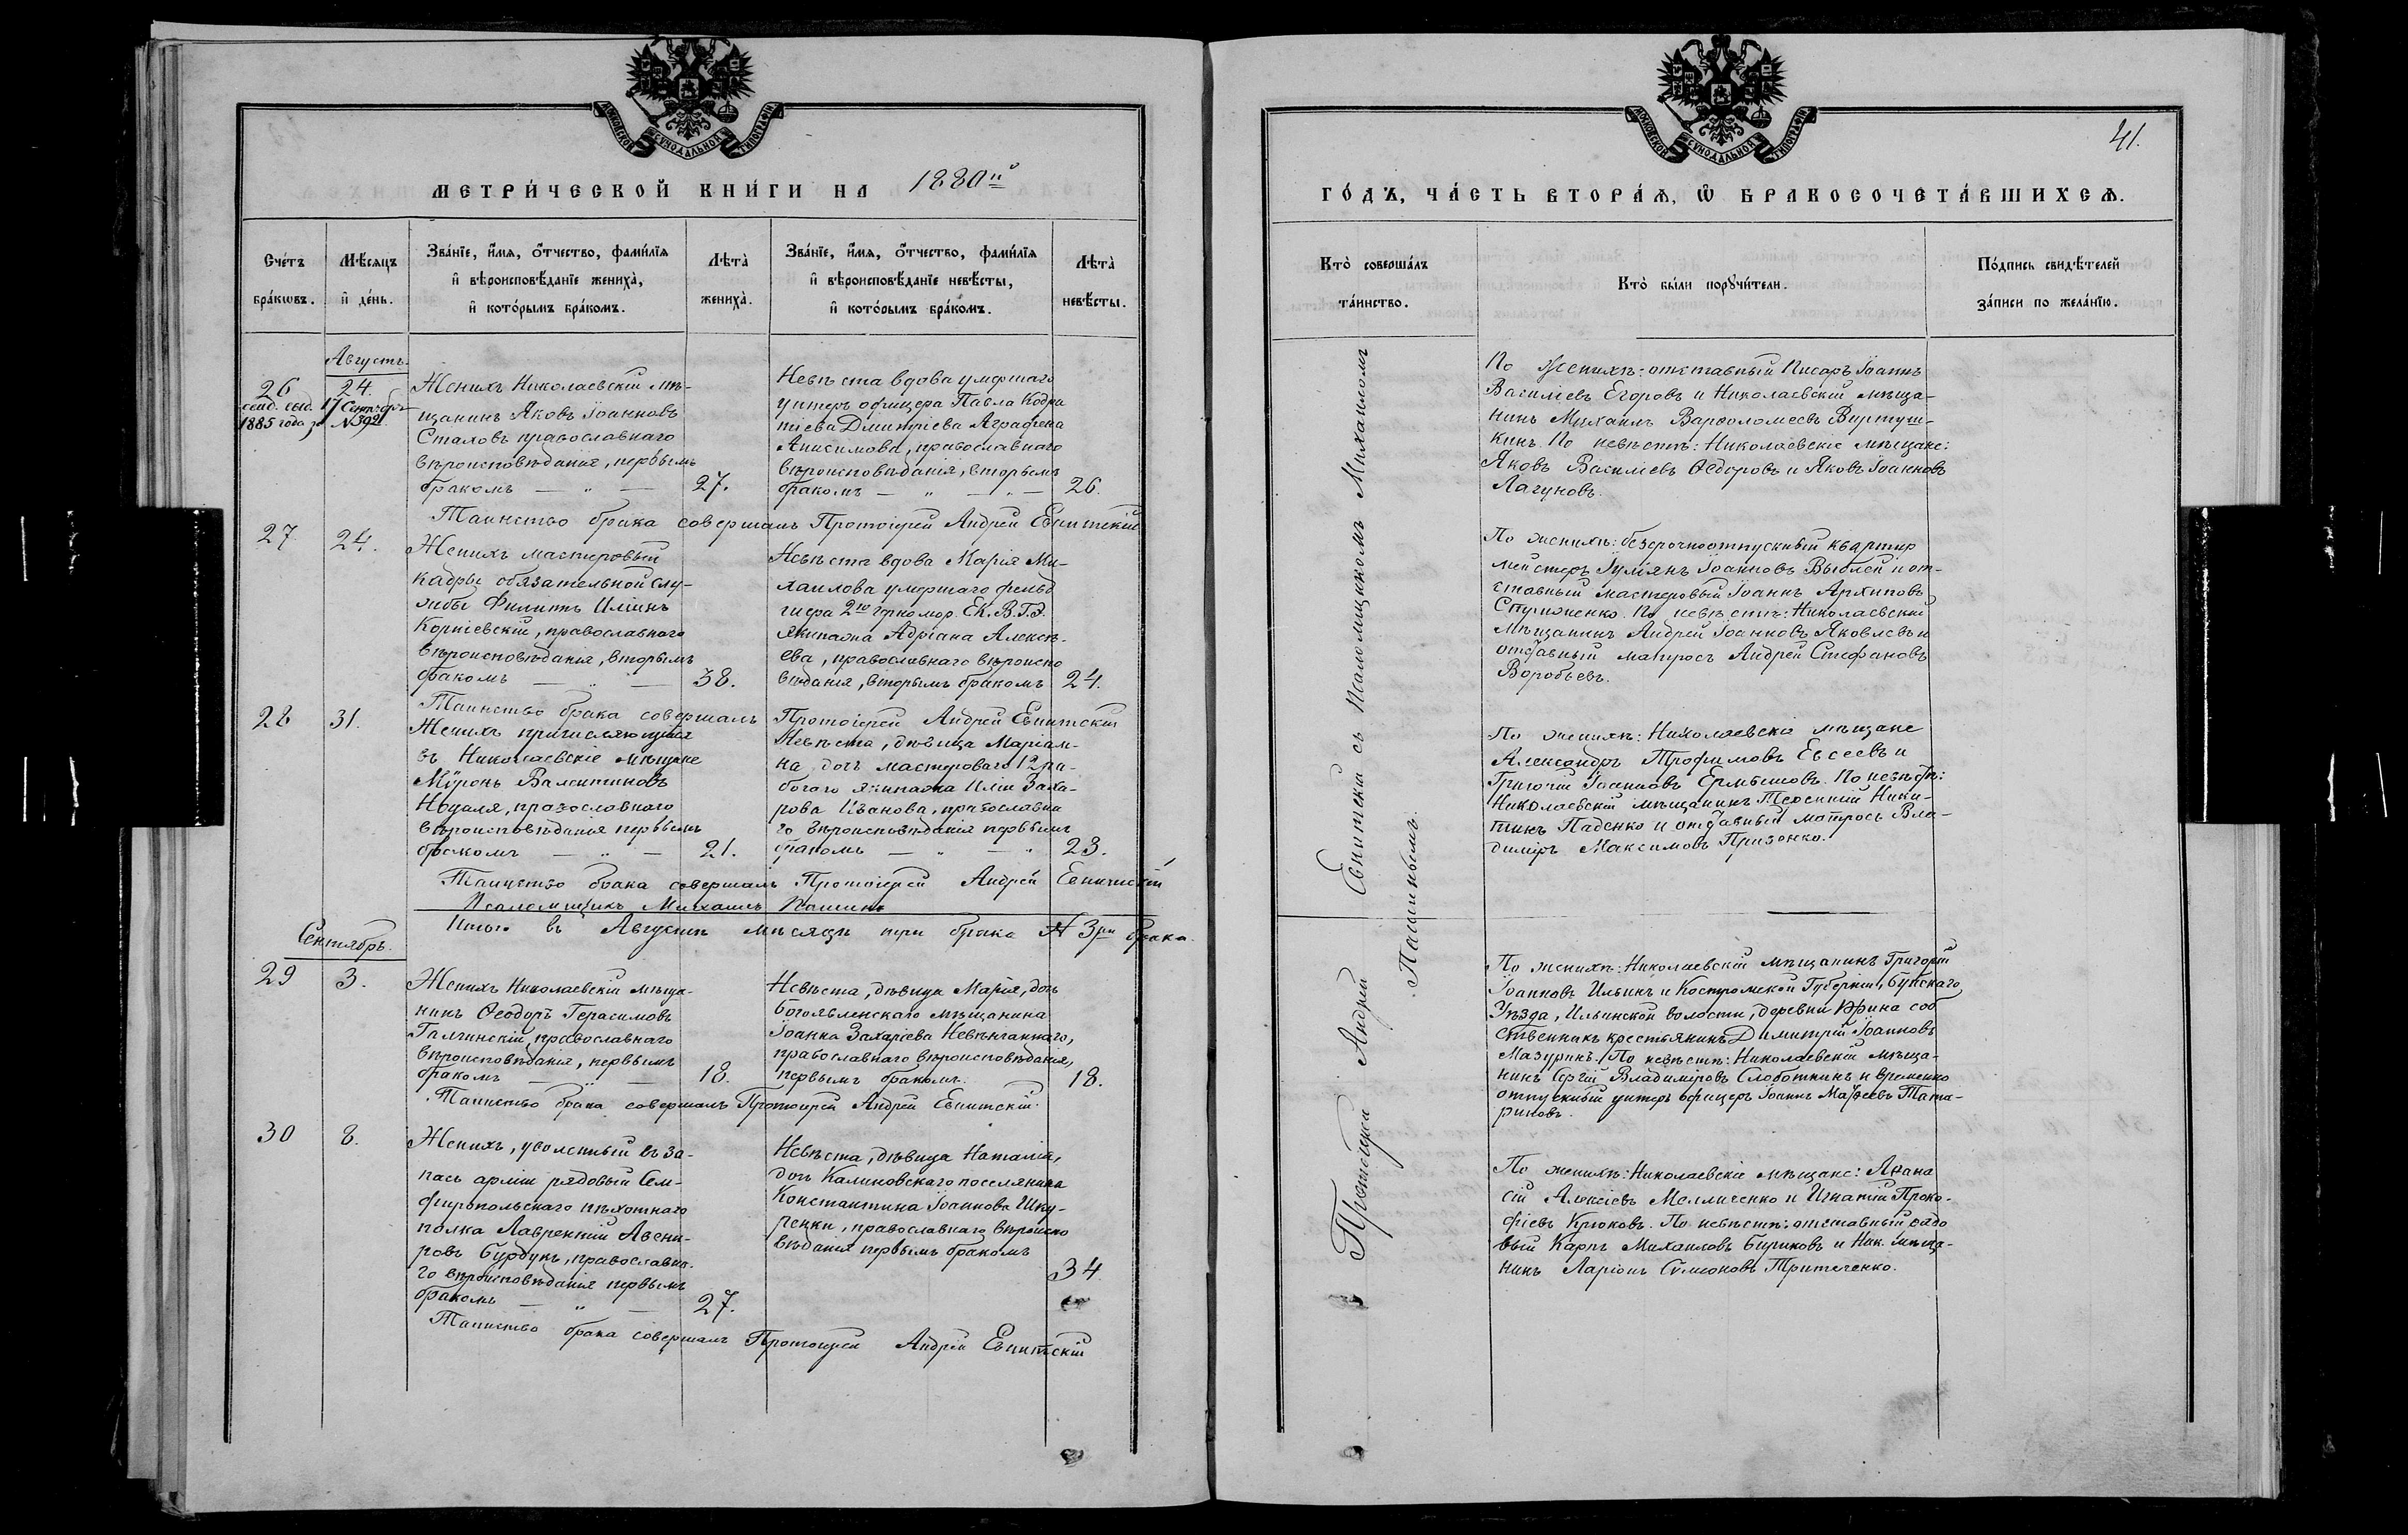 МОСКОВСКОЙ СѴНОДАЛЬНОЙ ТИПОГРАФІИ
МЕТРИ́ЧЕСКОЙ КНИ́ГИ НА 1880й
Сче́тъ бра́кѡвъ.
Мѣ́сяцъ и҆ де́нь.
Зва́нїе, и҆́мя, ѻ҆́тчество, фами́лїя
и҆ вѣроисповѣ́данїе жениха̀,
и҆ кото́рымъ бра́комъ.
Лѣта̀ жениха̀.
Зва́нїе, и҆́мя, ѻ҆́тчество, фами́лїя
и҆ вѣроисповѣ́данїе невѣ́сты,
и҆ кото́рымъ бра́комъ.
Лѣта̀ невѣ́сты.
Августъ.
26
24.
свид. выд. 17 Сентября
1885 года за №392
Женихъ Николаевскій мѣ-
щанинъ Яковъ Іоанновъ
Стаховъ православнаго
вѣроисповѣданія, первымъ
бракомъ — „ — 27.
Невѣста вдова умершаго
унтеръ офицера Павла Кодра
тіева Дмитріева Аграфена
Анисимова, православнаго
вѣроисповѣданія, вторымъ
бракомъ — „ — „ — 26.
Таинство брака совершалъ Протоіерей Андрей Евнитскій
27
24.
Женихъ мастеровый
кадры обязательной слу-
жбы Филиппъ Иліинъ
Корніевскій, православнаго
вѣроисповѣданія, вторымъ
бракомъ — „ — 38.
Невѣста вдова Марія Ми-
хаилова умершаго фельд
шера 2го Черномор. Ек. В. Г. Э.
экипажа Адріана Алексѣ-
ева, православнаго вѣроиспо
вѣданія, вторымъ бракомъ 24.
Таинство брака совершалъ Протоіерей Андрей Евнитскій
28
31.
Женихъ причисляющійся
въ Николаевскіе мѣщане
Мѵронъ Валентиновъ
православнаго
вѣроисповѣданія первымъ
бракомъ — „ — 21.
Невѣста, дѣвица Маріам-
на, дочь мастероваго 12 ра-
бочаго экипажа Иліи Заха-
рова Иванова, православна
го вѣроисповѣданія первымъ
бракомъ — „ — „ 23.
Таинство брака совершалъ Протоіерей Андрей Евнитскій
Псаломщикъ Михаилъ Пашинъ
Итого въ Августѣ мѣсяцѣ три брака 3ри брака.
Сентябрь.
29
3.
Женихъ Николаевскій мѣща-
нинъ Ѳеодоръ Герасимовъ
Галчинскій, православнаго
вѣроисповѣданія, первымъ
бракомъ — „ — 18.
Невѣста, дѣвица Марія, дочь
Богоявленскаго мѣщанина
Іоанна Захаріева Невѣнчаннаго,
православнаго вѣроисповѣданія,
первымъ бракомъ. 18.
Таинство брака совершалъ Протоіерей Андрей Евнитскій
30
8.
Женихъ, уволенный въ за-
пасъ арміи рядовый Сим-
феропольскаго пѣхотнаго
полка Лаврентій Авени-
ровъ Бурдукъ, православна-
го вѣроисповѣданія первымъ
бракомъ — „ — 27.
Невѣста, дѣвица Наталія,
дочь Калиновскаго поселянина
Константина Іоаннова Шку-
ренки, православнаго вѣроиспо
вѣданія первымъ бракомъ
34
Таинство брака совершалъ Протоіерей Андрей Евнитскій
МОСКОВСКОЙ СѴНОДАЛЬНОЙ ТИПОГРАФІИ
41.
ГО́ДЪ, ЧА́СТЬ ВТОРА́Я, Ѡ҆ БРАКОСОЧЕТА́ВШИХСЯ.
Кто̀ соверша́лъ та́инство.
Кто̀ бы́ли порꙋчи́тели.
По́дпись свидѣ́телей
за́писи по жела́нїю.
Протоіерей Андрей Евнитскій съ Псаломщикомъ Михаиломъ
Пашинымъ.
По женихѣ: отставный Писарь Іоаннъ
Василіевъ Егоровъ и Николаевскій мѣща-
нинъ Михаилъ Варѳоломеевъ Виртуш-
кинъ. По невѣстѣ: Николаевскіе мѣщане:
Яковъ Василіевъ Ѳедоровъ и Яковъ Іоанновъ
Лагуновъ.
По женихѣ: безсрочноотпускный квартир
мистеръ Іуліянъ Іоанновъ и от-
ставный мастеровый Іоаннъ Архиповъ
По невѣстѣ: Николаевскій
Мѣщанинъ Андрей Іоанновъ Яковлевъ и
отставный матросъ Андрей Стефановъ
Воробьевъ.
По женихѣ: Николаевскіе мѣщане
Александръ Трофимовъ Евсеевъ и
Григорій Іоанновъ Ермышовъ. По невѣстѣ:
Николаевскій мѣщанинъ Терентій Ники-
тинъ Паденко и отставный матросъ Вла-
диміръ Максимовъ Призенко.
По женихѣ: Николаевскій мѣщанинъ Григорій
Іоанновъ Ильинъ и Костромской Губерніи, Буйскаго
Уѣзда, Ильинской волости, деревни соб
ственникъ крестьянинъ Димитрій Іоанновъ
Мазуринъ. По невѣстѣ: Николаевскій мѣща-
нинъ Сергій Владиміровъ Слоботкинъ и временно
отпускный унтеръ офицеръ Іоаннъ Матѳеевъ Тата-
риновъ.
По женихѣ: Николаевскіе мѣщане: Аѳана
сій Алексіевъ Мелличенко и Игнатій Проко-
фіевъ Крюковъ. По невѣстѣ: отставный рядо
вый Карпъ Михаиловъ Бириковъ и Ник. мѣща-
нинъ Ларіонъ Сѵмеоновъ Тритеченко.